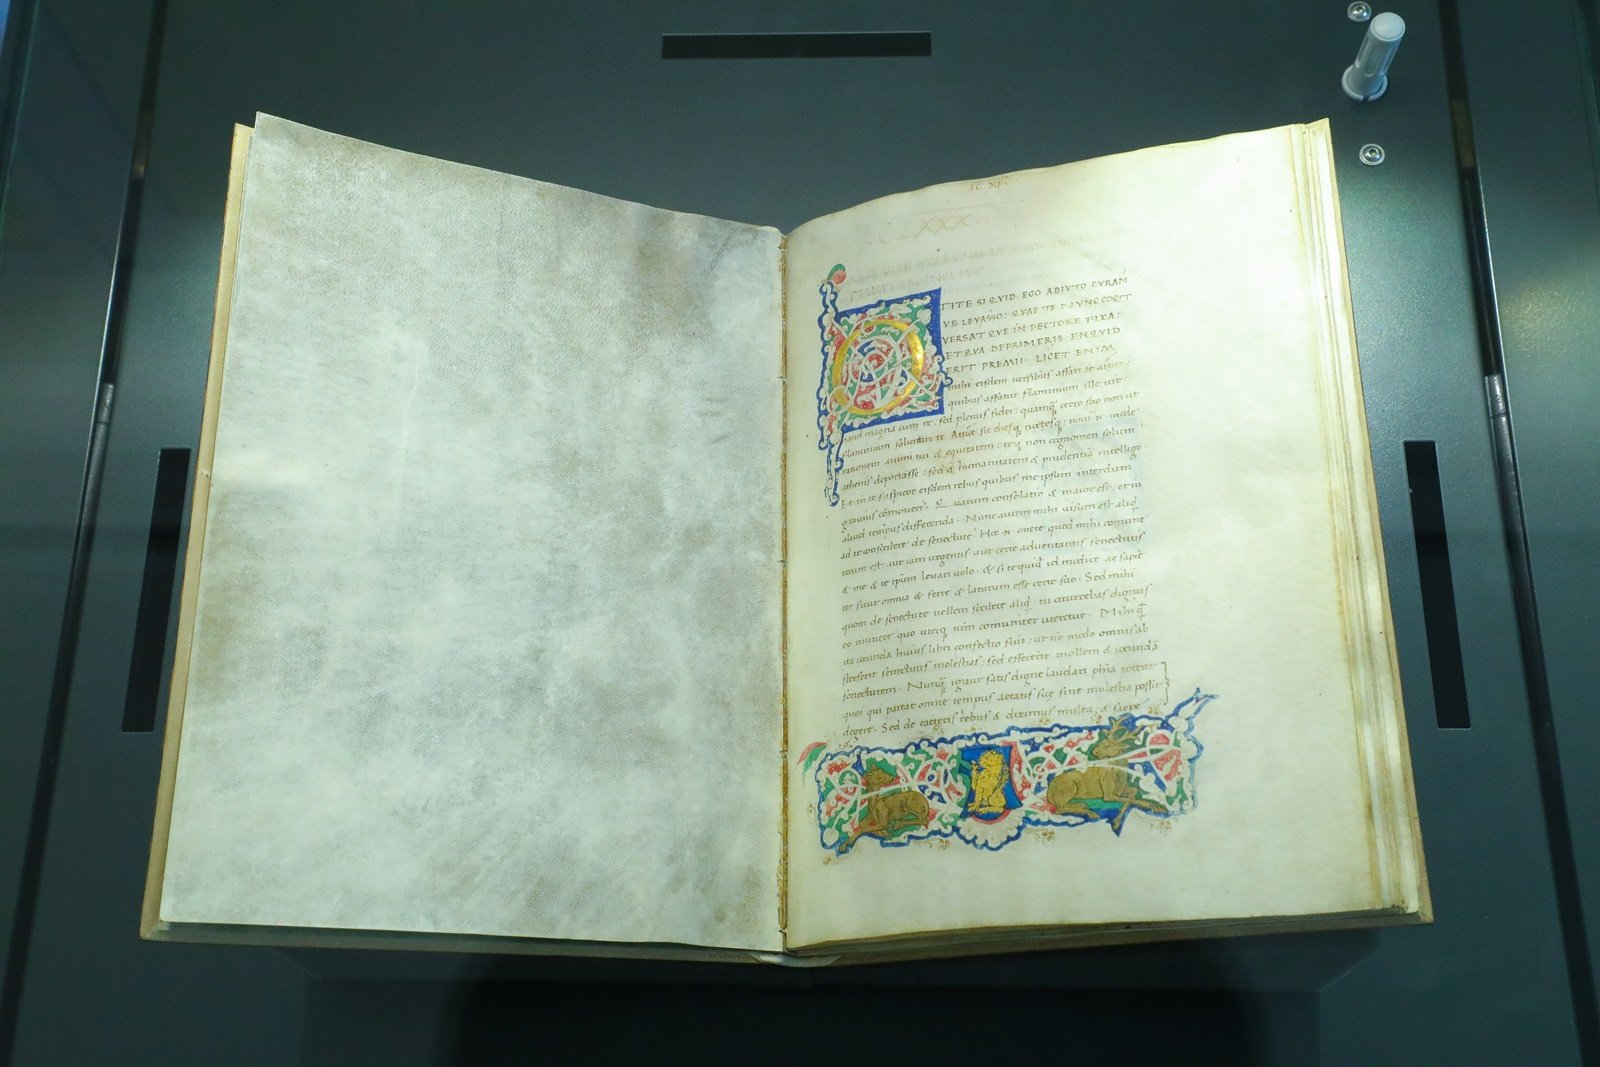 TITE SI QVID EGO ADIVTO CVRAM
VE LEVASSO: QVAE TE NVNC COQIT
VERSAT QVE IN PECTORE FIXA:
ET QVA DEPRIMERIS ENQVID
ERIT PREMII. LICET ENIM
mihi eisdem versibus affari te
quibus affatur flaminium ille vir
haud magna cum re: sed plenus fidei:
flaminium sollicitari te
rationem animi tui & equitatem: teq non cognomen solum
athenis deportasse: sed & humanitatem & prudentiā intelligo
Et in te suspicor eisdem rebus quibus me ipsum interdum
gravius cōmoveri. Quarum consolatio & maior est: et in
aliud tempus differenda. Nunc autem mihi visum est aliq̄
ad te conscribere de senectute. Hoc n. onere quod mihi comune
tecum est: aut iam urgentis aut certe adventantis senectutis
& me & te ipsum levari volo. & si te quidē id modice ac sapiē
ter sicut omnia & ferre & laturum esse certe scio. Sed mihi
quom de senectute vellem scribere aliq̄ tu occurrebas dignus
eo munere: quo uterq nrm comuniter uteretur. Mihi q̄
ita iocunda huius libri confectio fuit: ut nō modo omnis ab
sterserit senectutis molestias: sed effecerit mollem & iocundā
senectutem. Nunq̄ igitur satis digne laudari phia poterit
quoi qui pareat omne tempus aetatis sue sine molestia possit
degere. Sed de caeteris rebus & diximus multa: & saepe